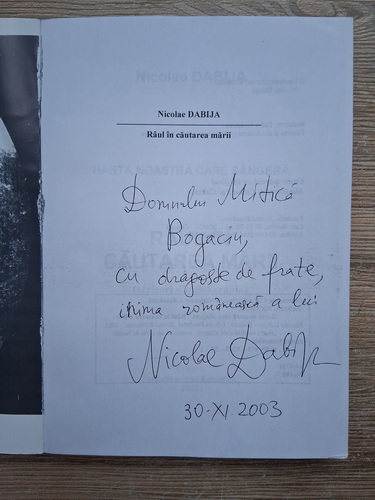 Nicolae DABIJA
Râul în căutarea mării
Domnului Mitică
Bogaciu,
cu dragoste de frate,
inima românească a lui
Nicolae Dabija
30-XI 2003